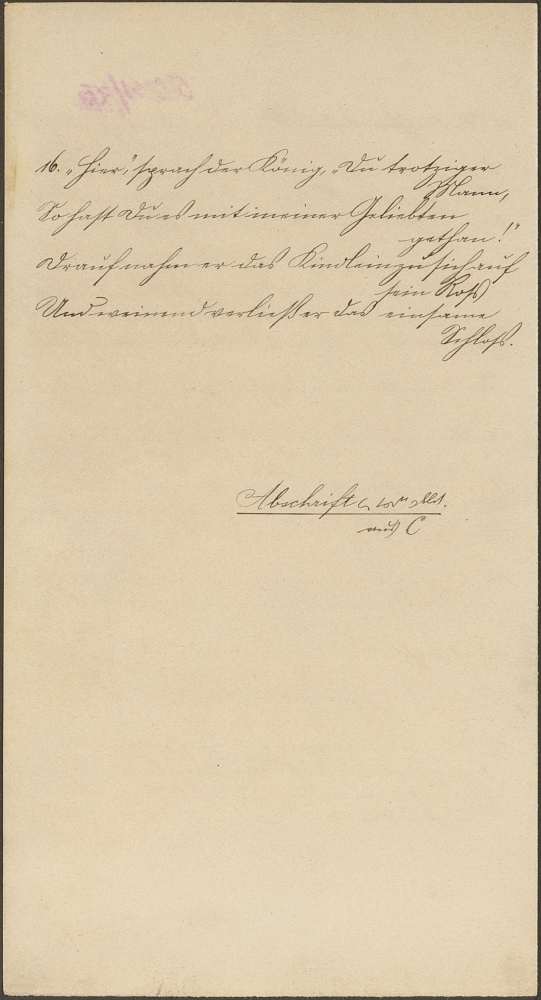 16. „Hier“, sprach der König, „Du trotziger
Mann,
So hast Du es mit meiner Geliebten
gethan!“
Drauf nahm er das Kindlein zu sich auf
sein Roß
Und weinend verließ er das einsame
Schloß.
Abschrift
aus C